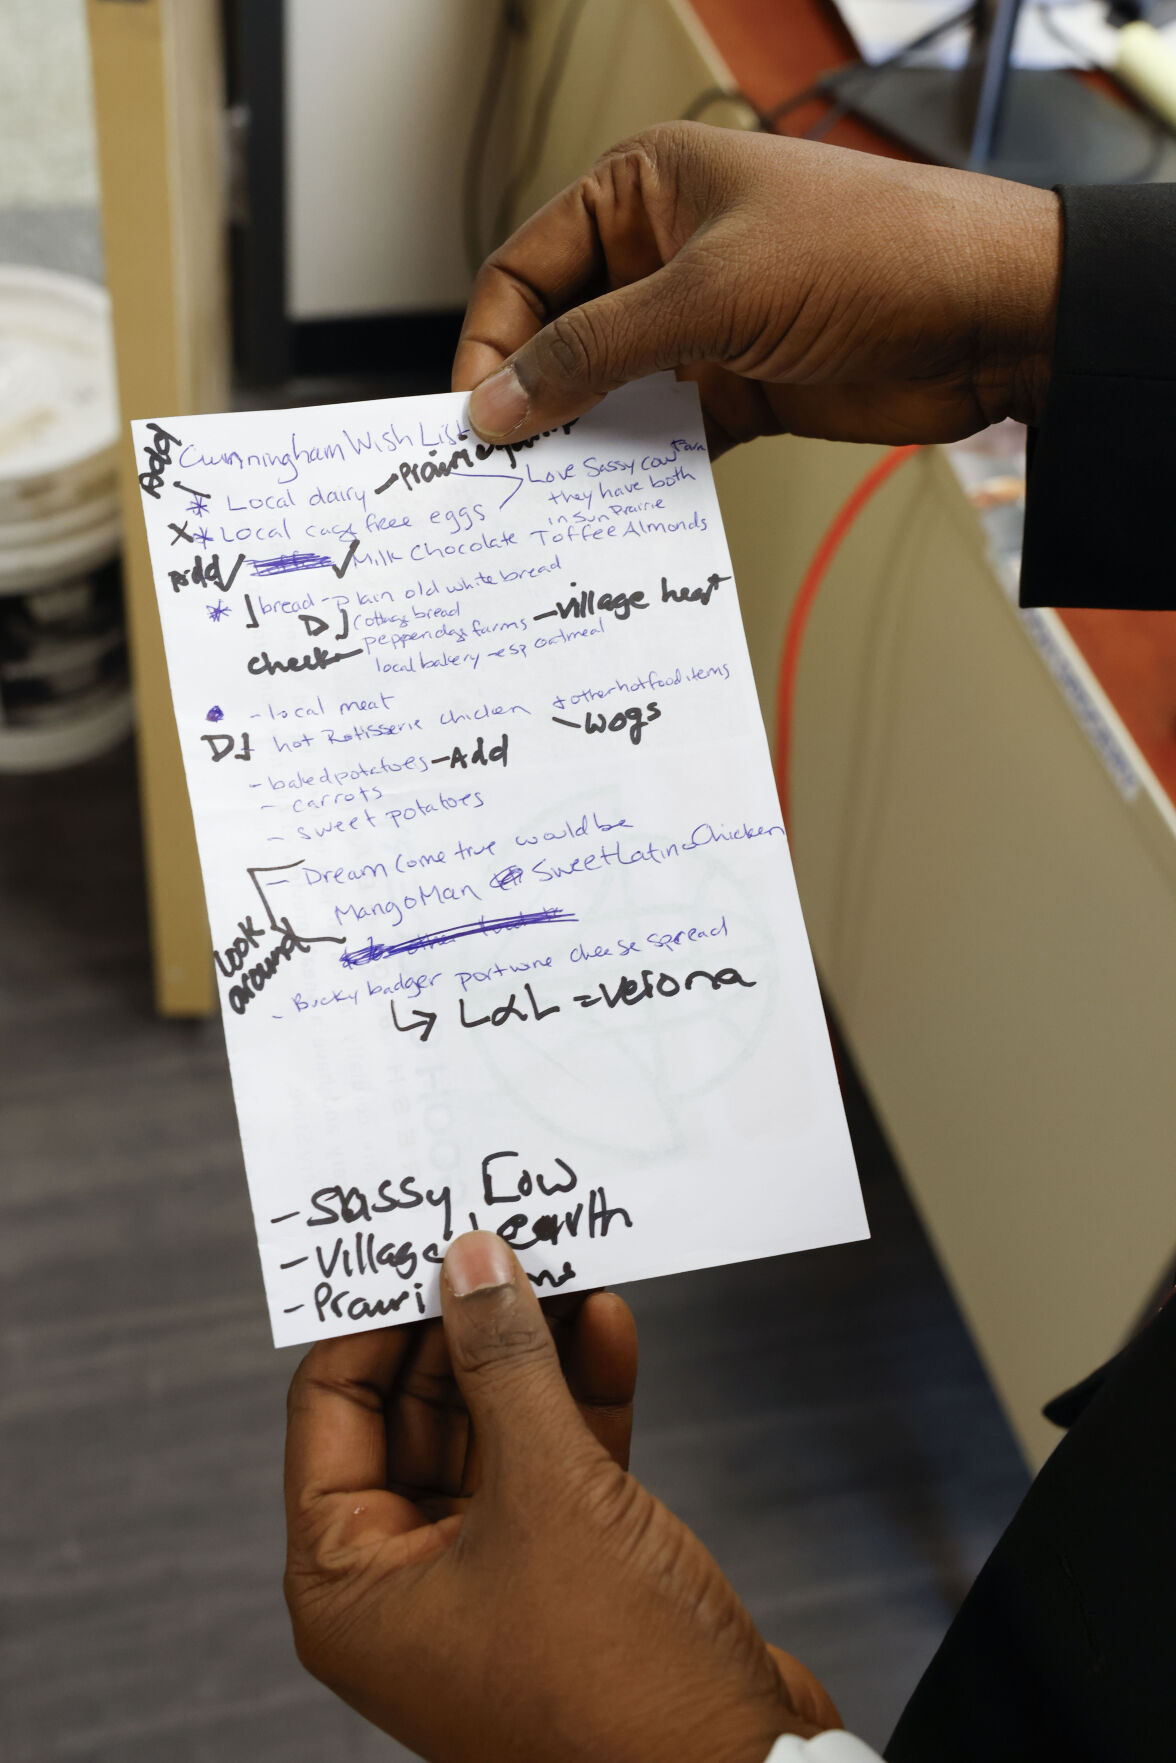 Add
Cunningham Wish List
* Local dairy - Prairie
Love Sassy Cow Farm
they have both
in Sun Prairie
X * Local cage free eggs
Add ✓ ✓ Milk Chocolate Toffee Almonds
* bread - plain old white bread
DJ cottage bread
check - pepperidge farms - village heart
local bakery - esp oatmeal
- local meat
DJ hot Rotisserie chicken & other hot food items
- wogs
- baked potatoes - Add
- carrots
- sweet potatoes
look around
- Dream come true would be
MangoMan Sweet Latina Chicken
- Bucky badger portwine cheese spread
↳ L&L = Verona
- Sassy Cow
- Village earth
- Prairi